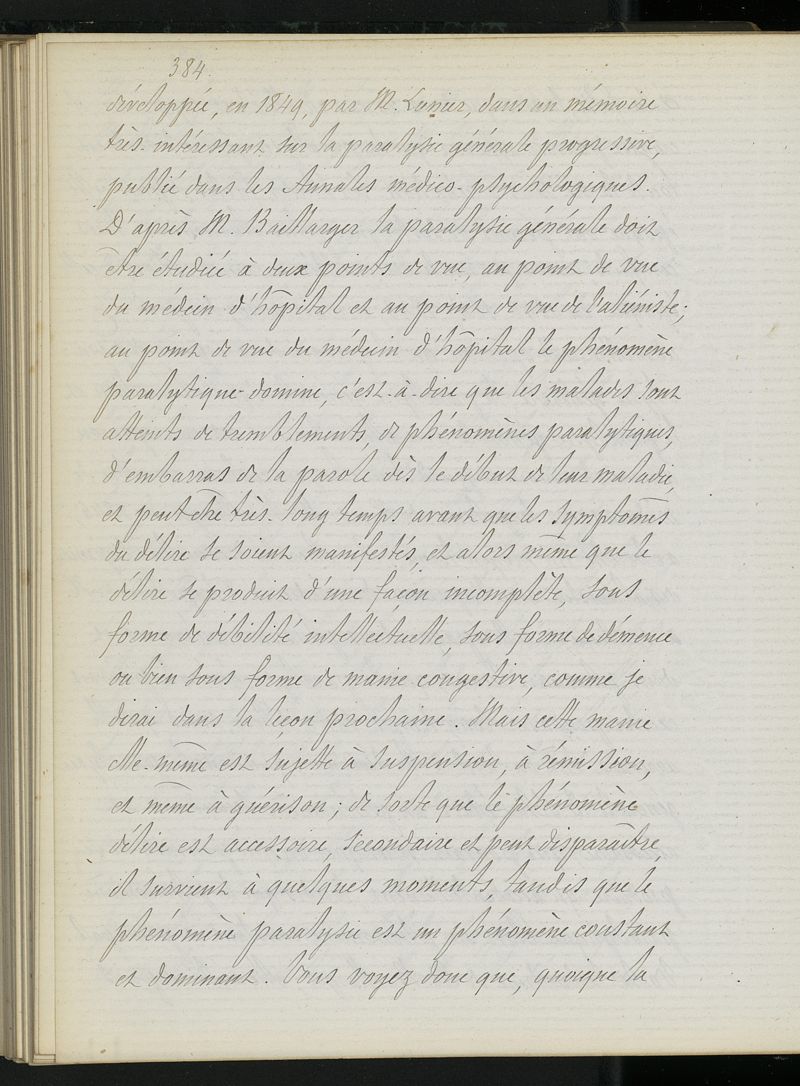 384.
développée, en 1849, par M. Lunier, dans un mémoire
très-intéressant sur la paralysie générale progressive,
publié dans les Annales médico-psychologiques.
D'après M. Baillarger la paralysie générale doit
être étudiée à deux points de vue, au point de vue
du médecin d'hôpital et au point de vue de l'aliéniste;
au point de vue du médecin d'hôpital le phénomène
paralytique domine, c'est-à-dire que les malades sont
atteints de tremblements, de phénomènes paralytiques,
d'embarras de la parole dès le début de leur maladie,
et peut être très-long temps avant que les symptomes
du délire se soient manifestés, et alors même que le
délire se produit d'une façon incomplète, sous
forme de débilité intellectuelle, sous forme de démence
ou bien sous forme de manie congestive, comme je
dirai dans la leçon prochaine. Mais cette manie
elle-même est sujette à suspension, à rémission,
et même à guérison; de sorte que le phénomène
délire est accessoire, secondaire et peut disparaître,
il survient à quelques moments, tandis que le
phénomène paralysie est un phénomène constant
et dominant. Vous voyez donc que, quoique la